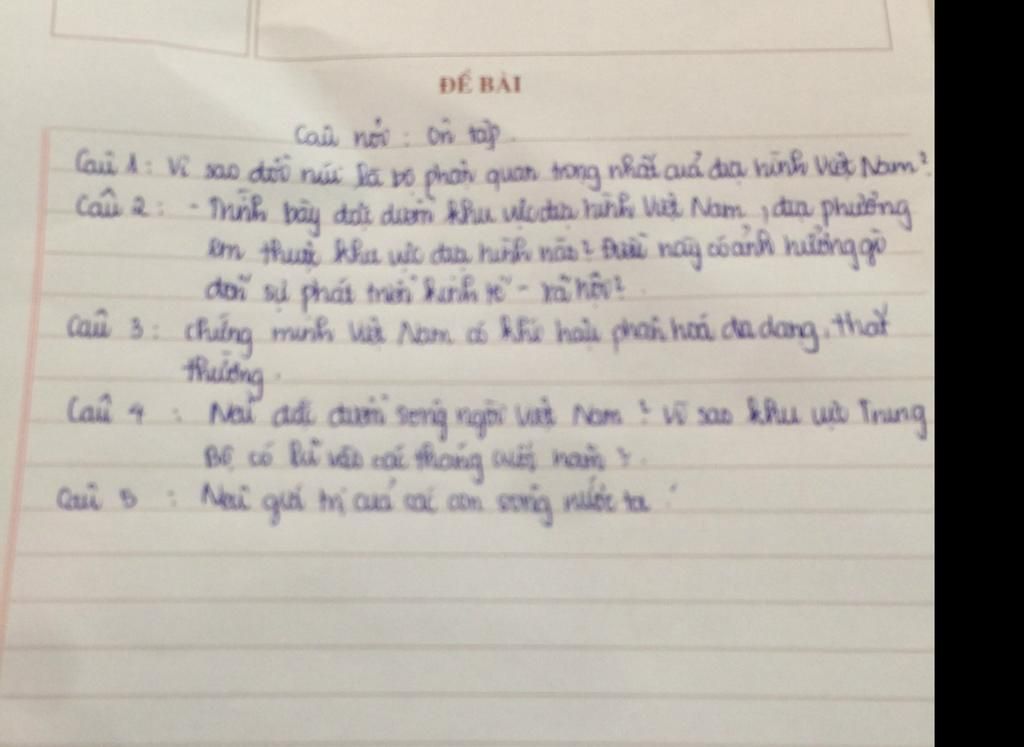 ĐỀ BÀI
Câu hỏi : Ôn tập.
Câu 1 : Vì sao đồi núi là bộ phận quan trọng nhất của địa hình Việt Nam?
Câu 2 : - Trình bày đặc điểm khu vực địa hình Việt Nam, địa phương
em thuộc khu vực địa hình nào? Điều này có ảnh hưởng gì
đến sự phát triển kinh tế - xã hội?.
Câu 3 : Chứng minh Việt Nam có khí hậu phân hoá đa dạng, thất
thường.
Câu 4 : Nêu đặc điểm sông ngòi Việt Nam? Vì sao khu vực Trung
Bộ có lũ vào các tháng cuối năm?.
Câu 5 : Nêu giá trị của các con sông nước ta